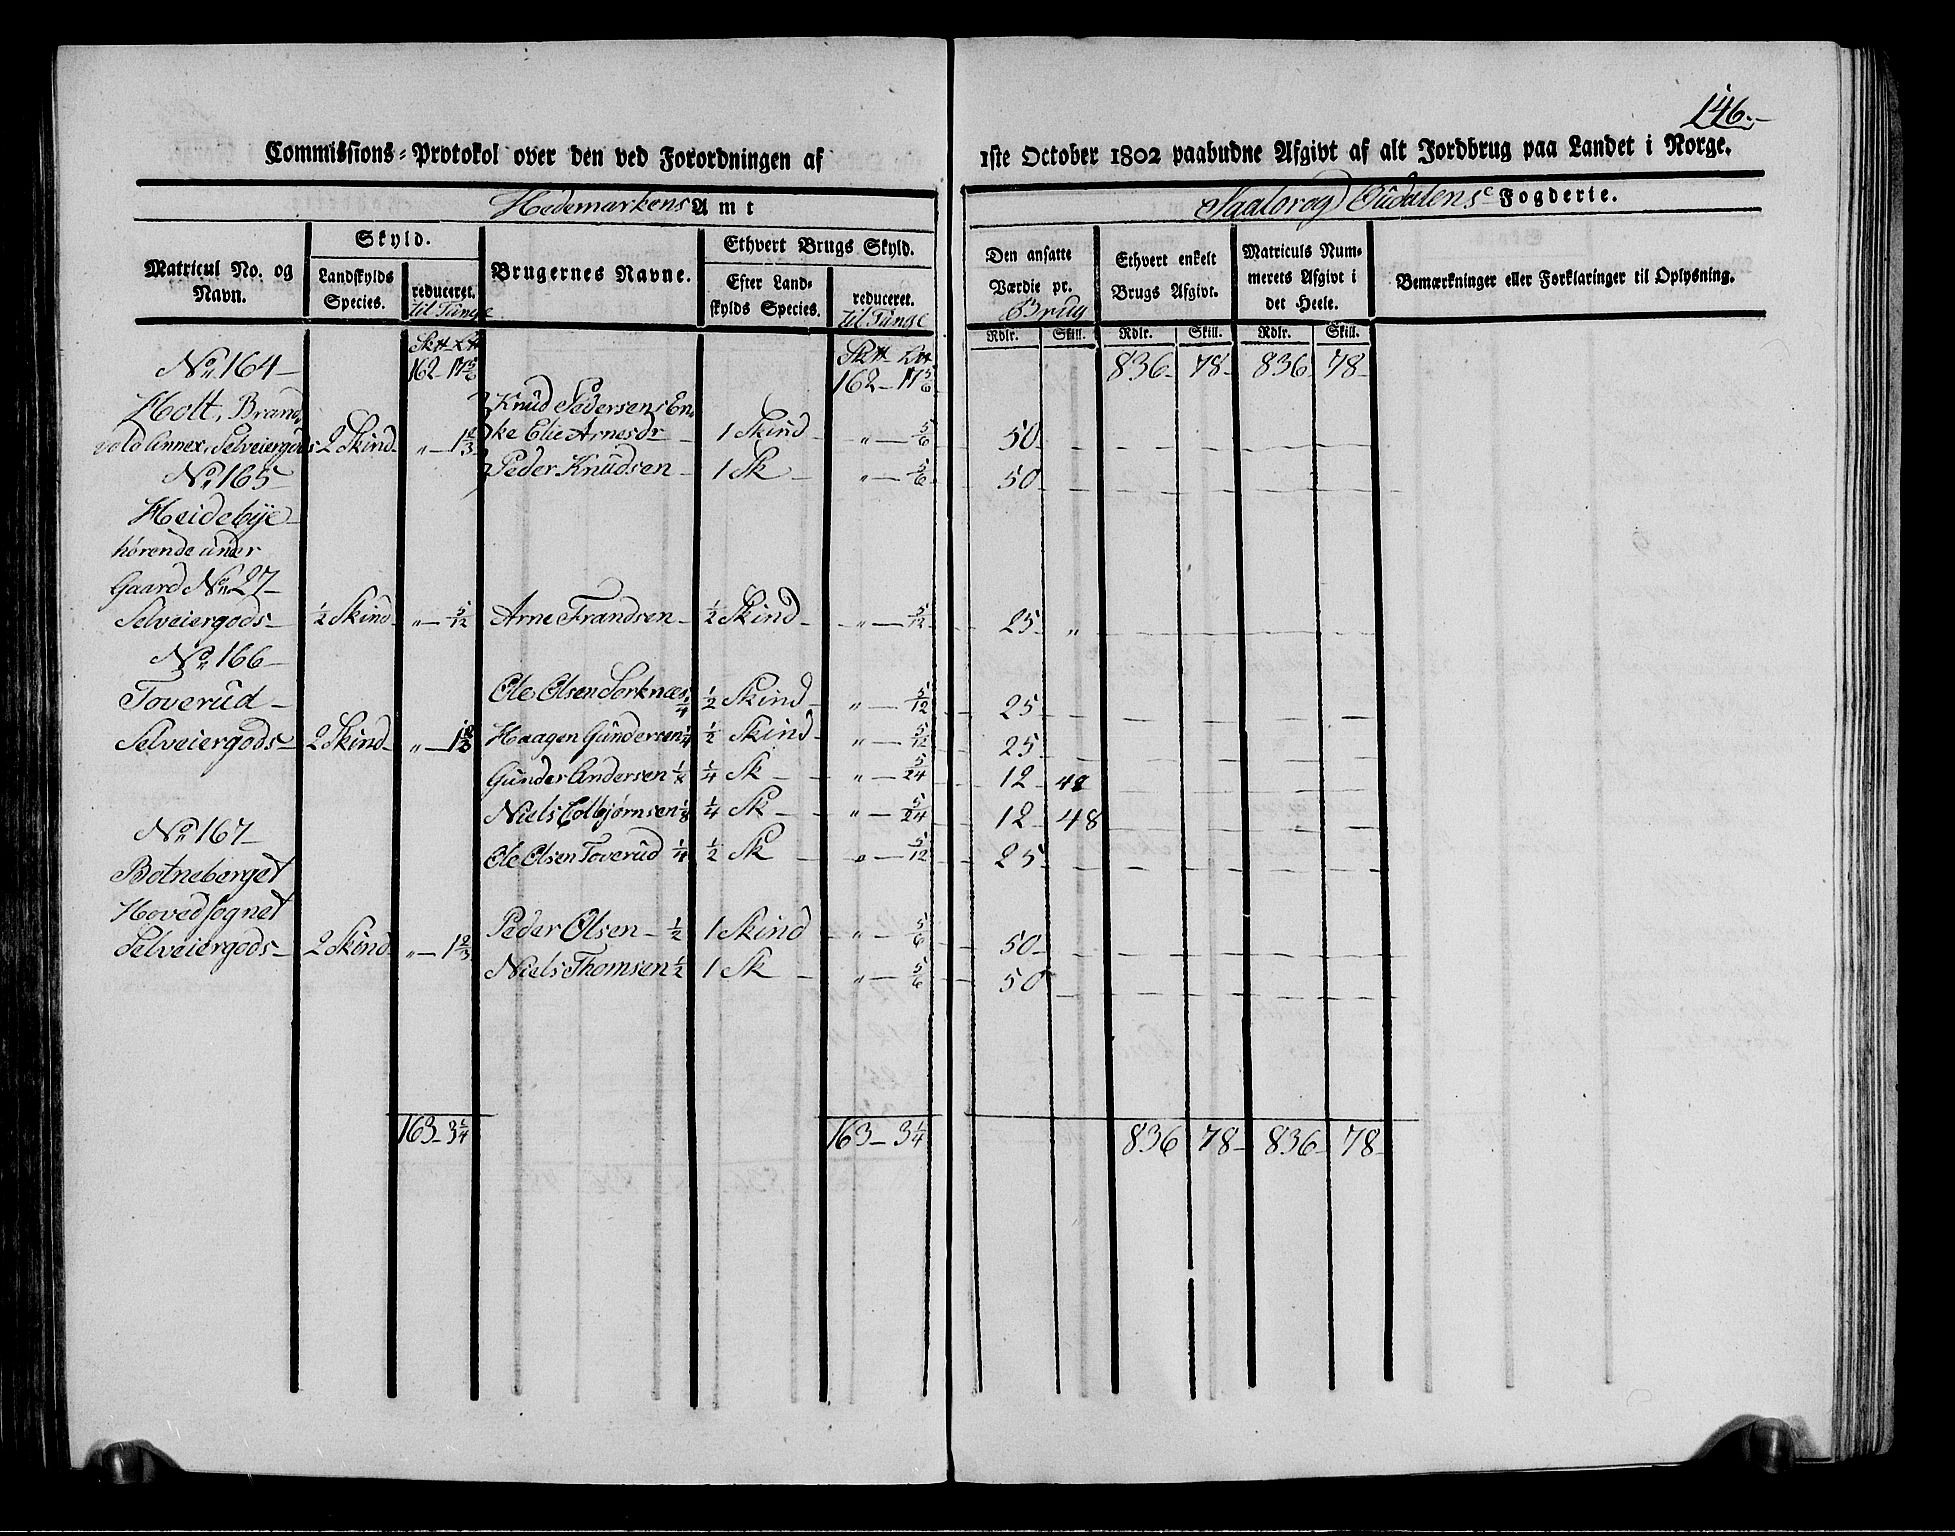 146.
Commissions-Protokol over den ved Forordningen af 1ste October 1802 paabudne Afgivt af alt Jordbrug paa Landet i Norge.
Hedemarkens Amt
Østerdalens Fogderie.
Matricul No. og Navn.
Skyld.
Landskylds Species.
reduceret. til Tünge
Brugernes Navne.
Ethvert Brugs Skyld.
Efter Landskylds Species.
reduceret. til Tünge
Den ansatte Værdie pr. Brug
Rdlr. Skill.
Ethvert enkelt Brugs Afgivt.
Rdlr. Skill.
Matriculs Nummerets Afgivt i det Heele.
Rdlr. Skill.
Bemærkninger eller Forklaringer til Oplysning.
No 164 162 - 17 5/6 162 - 17 5/6 836 78 836 78
Holt, Brand Knud Pedersens En
vold Annex, Selveiergods 2 Skind „ 1 2/3 ke Elie Arnesdr 1 Skind „ 5/6 50
No 165 Peder Knudsen 1 Sk „ 5/6 50
Heidebÿe
hørende under
Gaard No 27
Selveiergods 1/2 Skind „ 5/12 Arne Frandsen 1/2 Skind „ 5/12 25 „
No 166
Toverüd Ole Olsen Sorknæs 1/4 1/2 Skind „ 5/12 25
Selveiergods 2 Skind „ 1 2/3 Haagen Gündersen 1/4 1/2 Skind „ 5/12 25
Gunder Andersen 1/8 1/4 Sk „ 5/24 12 48
Niels Colbjørnsen 1/8 1/4 Sk „ 5/24 12 48
No 167
Ole Olsen Toverüd 1/4 1/2 Sk „ 5/12 25
Botneberget
Hovedsognet
Selveiergods 2 Skind „ 1 2/3 Peder Olsen 1/2 1 Skind „ 5/6 50
Niels Thomsen 1/2 1 Sk „ 5/6 50
163 - 3 1/4 163 - 3 1/4 836 78 836 78